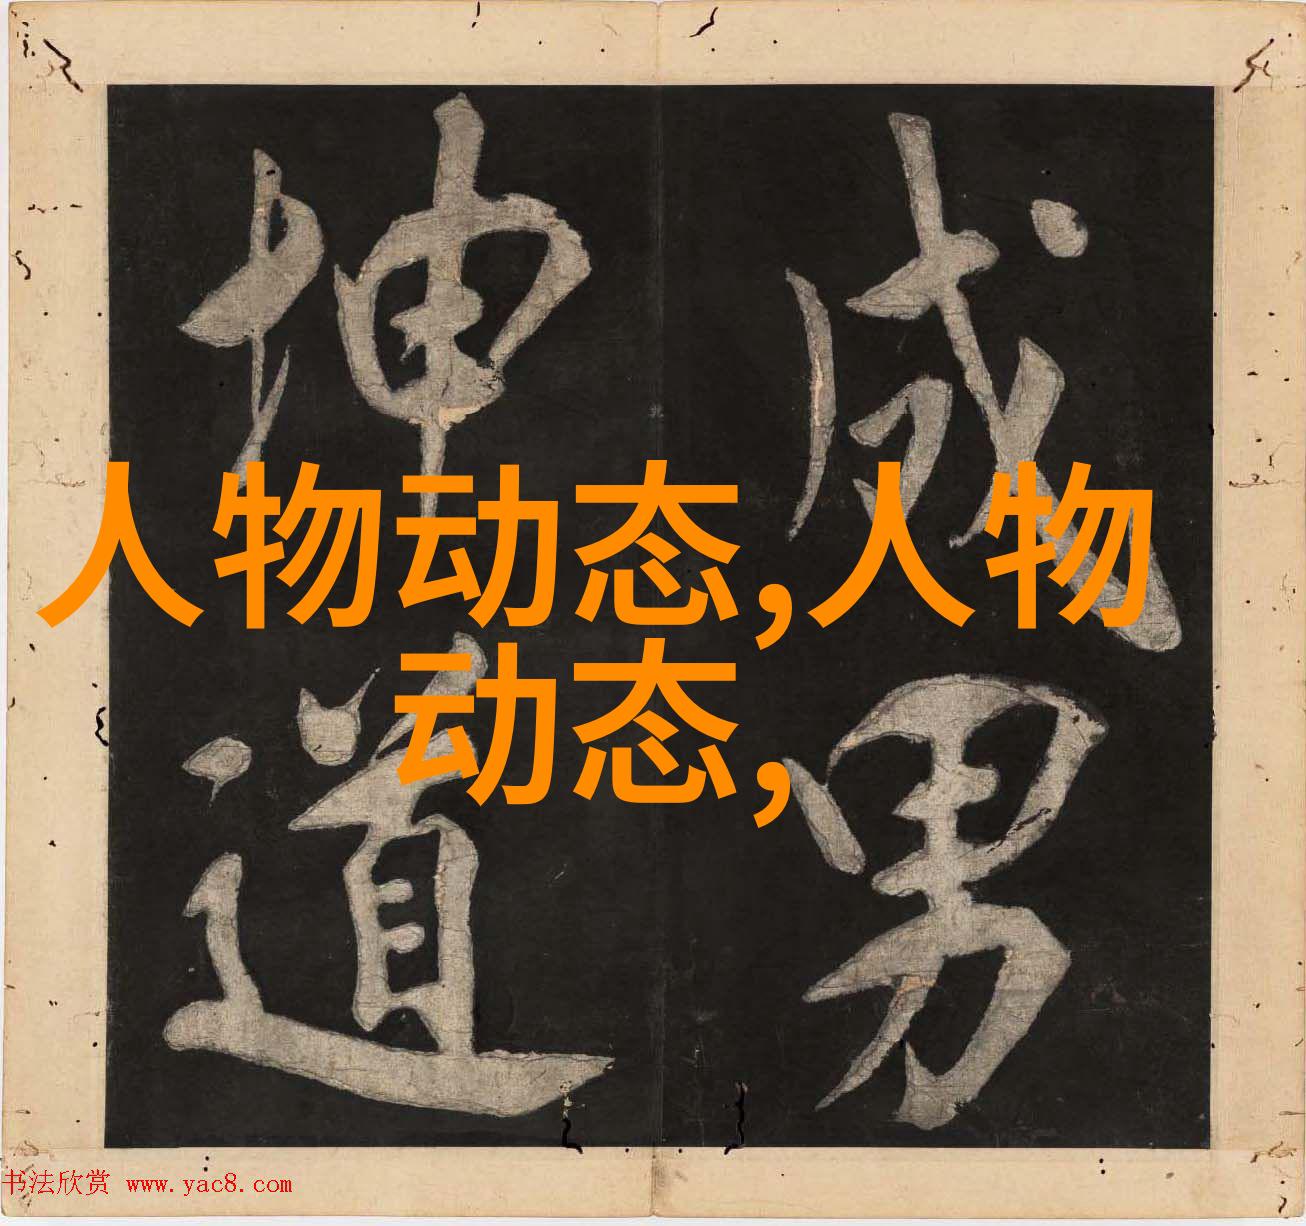 成男
坤道
人物动态,人物
动态,
书法欣赏 www.yac8.com